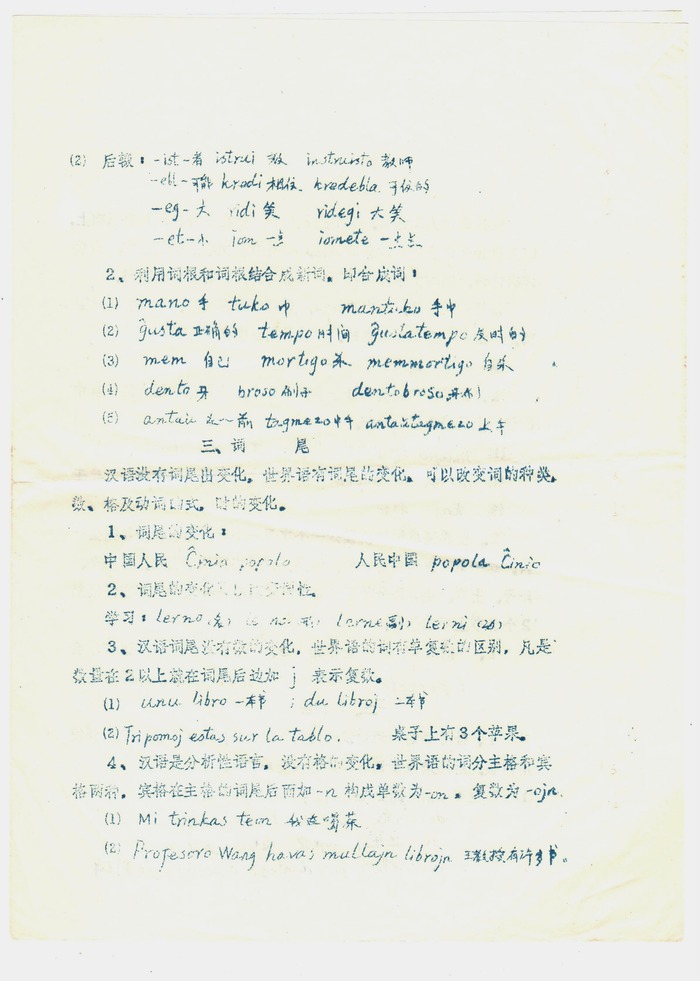 (2) 后辍：-ist-者 istrui 教 instruisto 教师
-ebl-可能 kredi 相信 kredebla 可信的
-eg-大 ridi 笑 ridegi 大笑
-et-小 iom 一点 iomete 一点点
2、利用词根和词根结合成新词，即合成词：
(1) mano 手 tuko 巾 mantuko 手巾
(2) ĝusta 正确的 tempo 时间 ĝustatempo 及时的
(3) mem 自己 mortigo 杀 memmortigo 自杀
(4) dento 牙 broso 刷子 dentobroso 牙刷
(5) antaŭ 在~前 tagmezo 中午 antaŭtagmezo 上午
三、词 尾
汉语没有词尾出变化，世界语有词尾的变化，可以改变词的种类，
数、格及动词的式，时的变化。
1、词尾的变化：
中国人民 Ĉinia popolo 人民中国 popola Ĉinio
2、词尾的变化 性。
学习：lerno(名) lerne(副) lerni(动)
3、汉语词尾没有数的变化，世界语的词有单复数的区别，凡是
数量在2以上就在词尾后边加 j 表示复数。
(1) unu libro 一本书 ; du libroj 二本书
(2) Tri pomoj estas sur la tablo. 桌子上有3个苹果。
4、汉语是分析性语言，没有格的变化，世界语的词分主格和宾
格两种，宾格在主格的词尾后面加-n 构成单数为-on，复数为-ojn.
(1) Mi trinkas teon 我在喝茶
(2) Profesoro Wang havas multajn librojn 王教授有许多书。